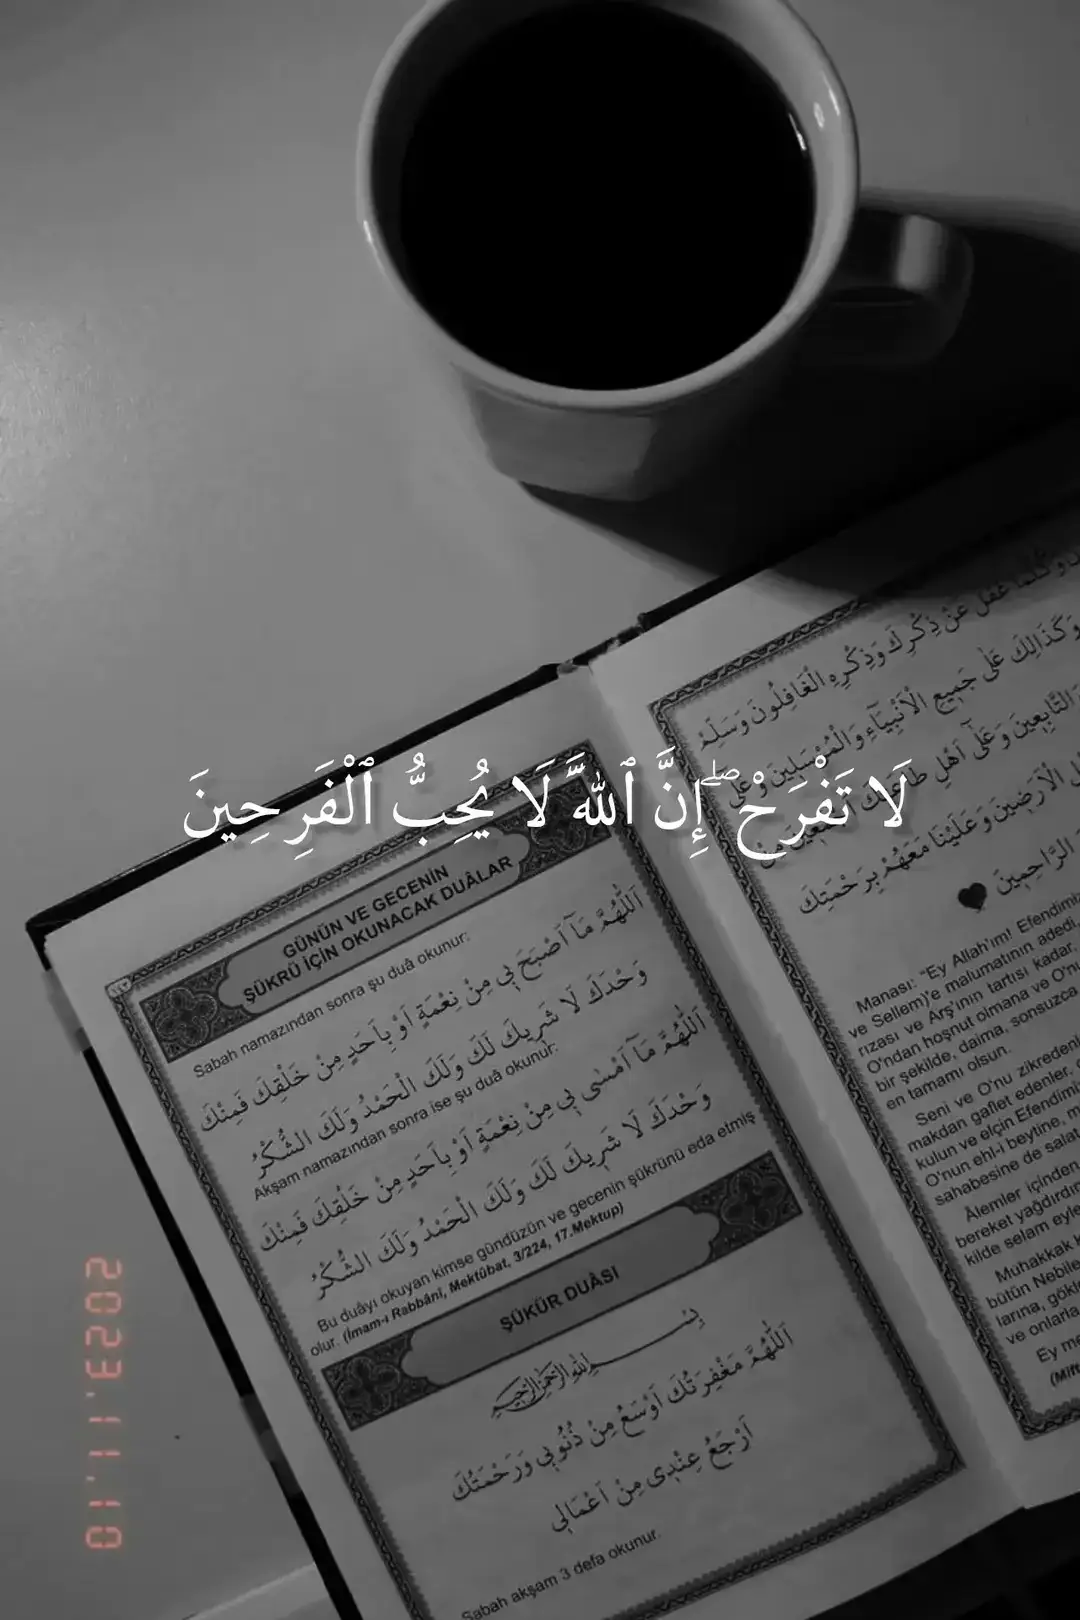 لَا تَفْرَحْ ۖ إِنَّ ٱللَّهَ لَا يُحِبُّ ٱلْفَرِحِينَ
GÜNÜN VE GECENİN
ŞÜKRÜ İÇİN OKUNACAK DUÂLAR
Sabah namazından sonra şu duâ okunur:
اَللّٰهُمَّ مَٓا اَصْبَحَ بٖي مِنْ نِعْمَةٍ اَوْ بِاَحَدٍ مِنْ خَلْقِكَ فَمِنْكَ
وَحْدَكَ لَا شَرٖيكَ لَكَ وَلَكَ الْحَمْدُ وَلَكَ الشُّكْرُ
Akşam namazından sonra ise şu duâ okunur:
اَللّٰهُمَّ مَٓا اَمْسٰى بٖي مِنْ نِعْمَةٍ اَوْ بِاَحَدٍ مِنْ خَلْقِكَ فَمِنْكَ
وَحْدَكَ لَا شَرٖيكَ لَكَ وَلَكَ الْحَمْدُ وَلَكَ الشُّكْرُ
Bu duâyı okuyan kimse gündüzün ve gecenin şükrünü eda etmiş
olur. (İmam-ı Rabbânî, Mektûbat, 3/224, 17.Mektup)
ŞÜKÜR DUÂSI
بِسْمِ اللهِ الرَّحْمٰنِ الرَّحِيمِ
اَللّٰهُمَّ مَغْفِرَتُكَ اَوْسَعُ مِنْ ذُنُوبٖي وَرَحْمَتُكَ
اَرْجَعُ عِنْدٖى مِنْ اَعْمَالٖي
Sabah akşam 3 defa okunur.
وَكُلَّمَا غَفَلَ عَنْ ذِكْرِكَ وَذِكْرِهِ الْغَافِلُونَ وَسَلِّمْ
وَكَذَالِكَ عَلٰى جَمٖيعِ الْاَنْبِيَٓاءِ وَالْمُرْسَلٖينَ وَعَلٰى
التَّابِعٖينَ وَعَلٰٓى اَهْلِ طَاعَتِكَ اَجْمَعٖينَ مِنْ
الْاَرَضٖينَ وَعَلَيْنَا مَعَهُمْ بِرَحْمَتِكَ
الرَّاحِمٖينَ
Manası: "Ey Allah'ım! Efendimiz
ve Sellem)'e malumatının adedi,
rızası ve Arş'inin tartısı kadar,
O'ndan hoşnut olmana ve O'nu
bir şekilde, daima, sonsuzca
en tamamı olsun.
Seni ve O'nu zikredenler
makdan gaflet edenler,
kulun ve elçin Efendimiz
O'nun ehl-i beytine,
sahabesine de salat
Âlemler içinden
bereket yağdırdı
kilde selam eyle
Muhakkak k
bütün Nebile
larına, gökl
ve onlarla
Ey me
(Mift
2023.11.10